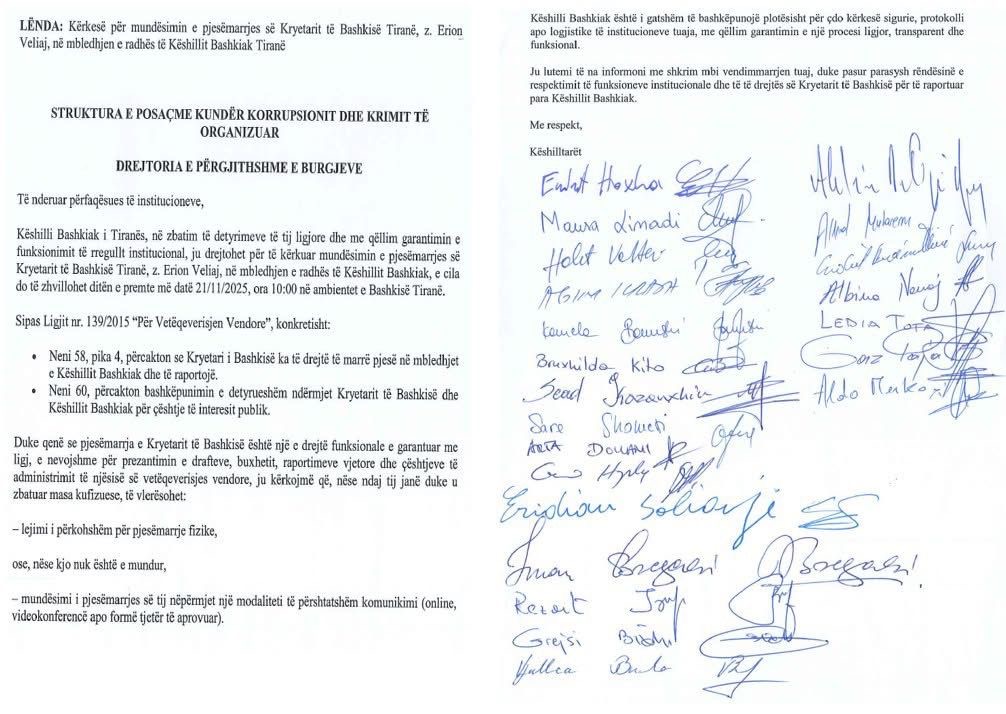 LËNDA: Kërkesë për mundësimin e pjesëmarrjes së Kryetarit të Bashkisë Tiranë, z. Erion
Veliaj, në mbledhjen e radhës të Këshillit Bashkiak Tiranë
STRUKTURA E POSAÇME KUNDËR KORRUPSIONIT DHE KRIMIT TË
ORGANIZUAR
DREJTORIA E PËRGJITHSHME E BURGJEVE
Të nderuar përfaqësues të institucioneve,
Këshilli Bashkiak i Tiranës, në zbatim të detyrimeve të tij ligjore dhe me qëllim garantimin e
funksionimit të rregullt institucional, ju drejtohet për të kërkuar mundësimin e pjesëmarrjes së
Kryetarit të Bashkisë Tiranë, z. Erion Veliaj, në mbledhjen e radhës të Këshillit Bashkiak, e cila
do të zhvillohet ditën e premte më datë 21/11/2025, ora 10:00 në ambientet e Bashkisë Tiranë.
Sipas Ligjit nr. 139/2015 “Për Vetëqeverisjen Vendore”, konkretisht:
• Neni 58, pika 4, përcakton se Kryetari i Bashkisë ka të drejtë të marrë pjesë në mbledhjet
e Këshillit Bashkiak dhe të raportojë.
• Neni 60, përcakton bashkëpunimin e detyrueshëm ndërmjet Kryetarit të Bashkisë dhe
Këshillit Bashkiak për çështje të interesit publik.
Duke qenë se pjesëmarrja e Kryetarit të Bashkisë është një e drejtë funksionale e garantuar me
ligj, e nevojshme për prezantimin e drafteve, buxhetit, raportimeve vjetore dhe çështjeve të
administrimit të njësisë së vetëqeverisjes vendore, ju kërkojmë që, nëse ndaj tij janë duke u
zbatuar masa kufizuese, të vlerësohet:
– lejimi i përkohshëm për pjesëmarrje fizike,
ose, nëse kjo nuk është e mundur,
– mundësimi i pjesëmarrjes së tij nëpërmjet një modaliteti të përshtatshëm komunikimi (online,
videokonferencë apo formë tjetër të aprovuar).
Këshilli Bashkiak është i gatshëm të bashkëpunojë plotësisht për çdo kërkesë sigurie, protokolli
apo logjistike të institucioneve tuaja, me qëllim garantimin e një procesi ligjor, transparent dhe
funksional.
Ju lutemi të na informoni me shkrim mbi vendimmarrjen tuaj, duke pasur parasysh rëndësinë e
respektimit të funksioneve institucionale dhe të të drejtës së Kryetarit të Bashkisë për të raportuar
para Këshillit Bashkiak.
Me respekt,
Këshilltarët
Hoxha
Maura
Halit
Kamela
Bruxhilda Kito
Sead
Sare
ARTA DOLLANI
Eridian
Grejsi
Albina
LEDIA TOTA
Aldo